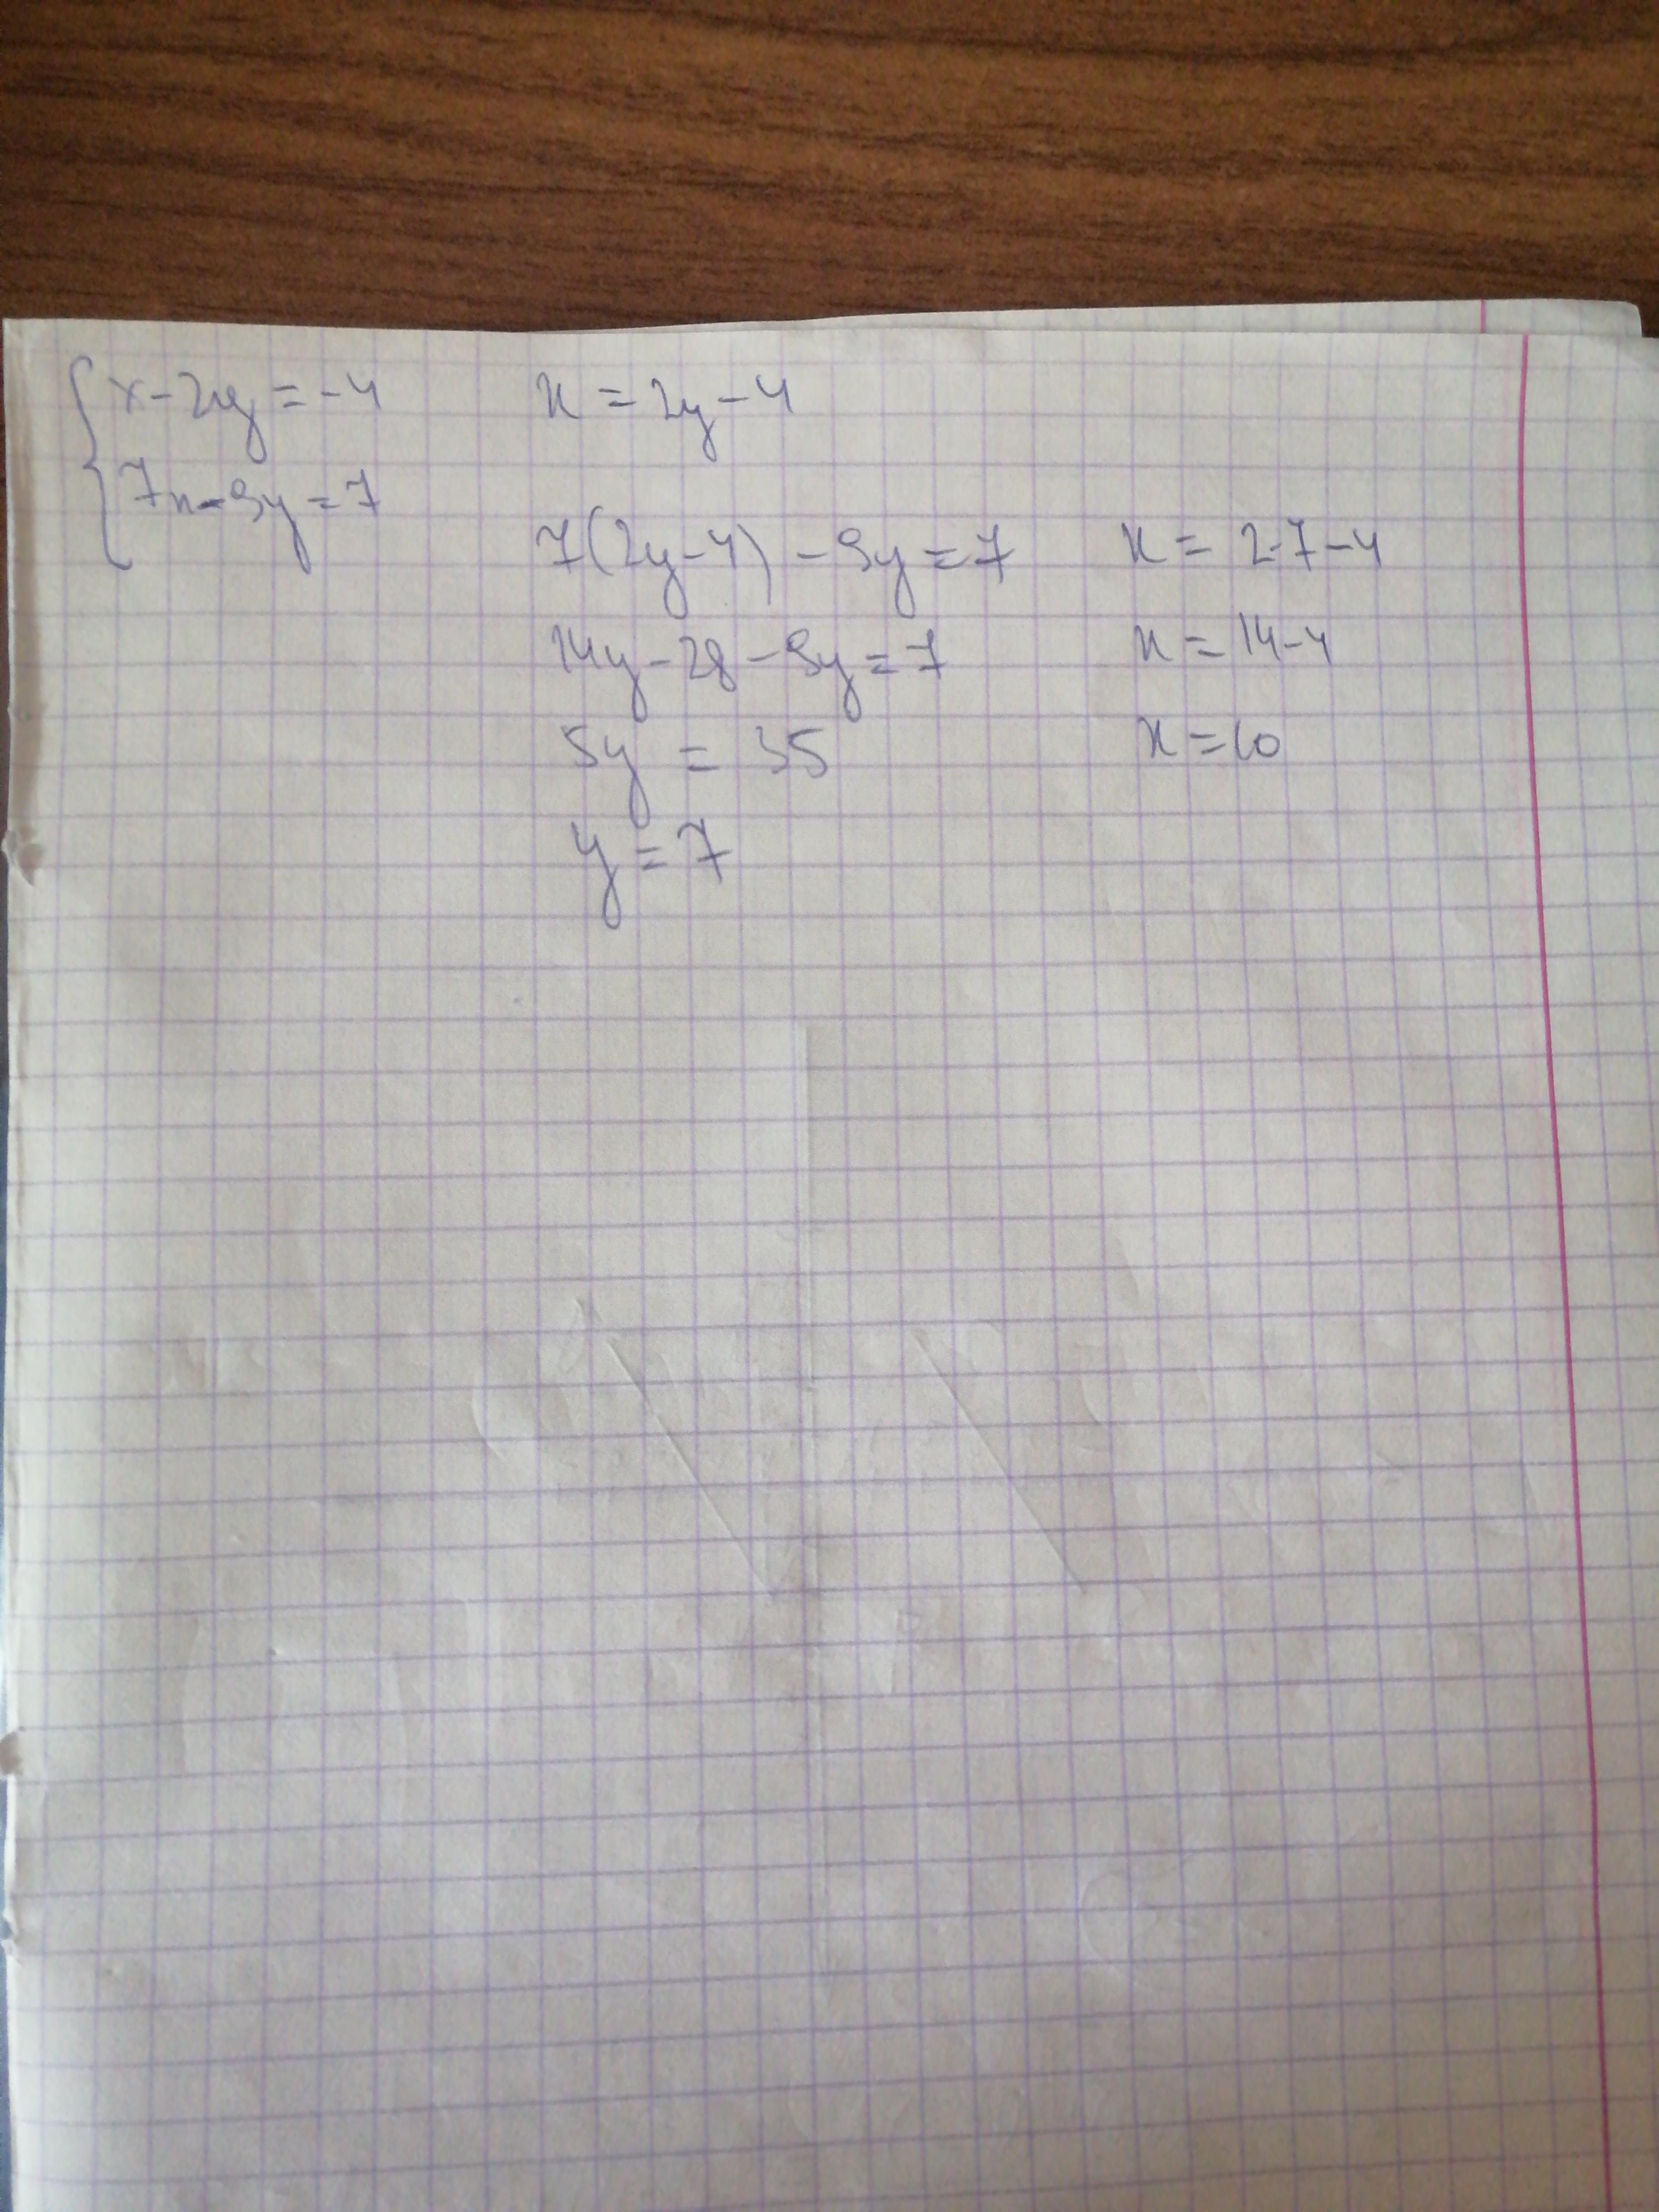 x-2y=-4
7x-9y=7
x=2y-4
7(2y-4)-9y=7
14y-28-9y=7
5y=35
y=7
x=2·7-4
x=14-4
x=10